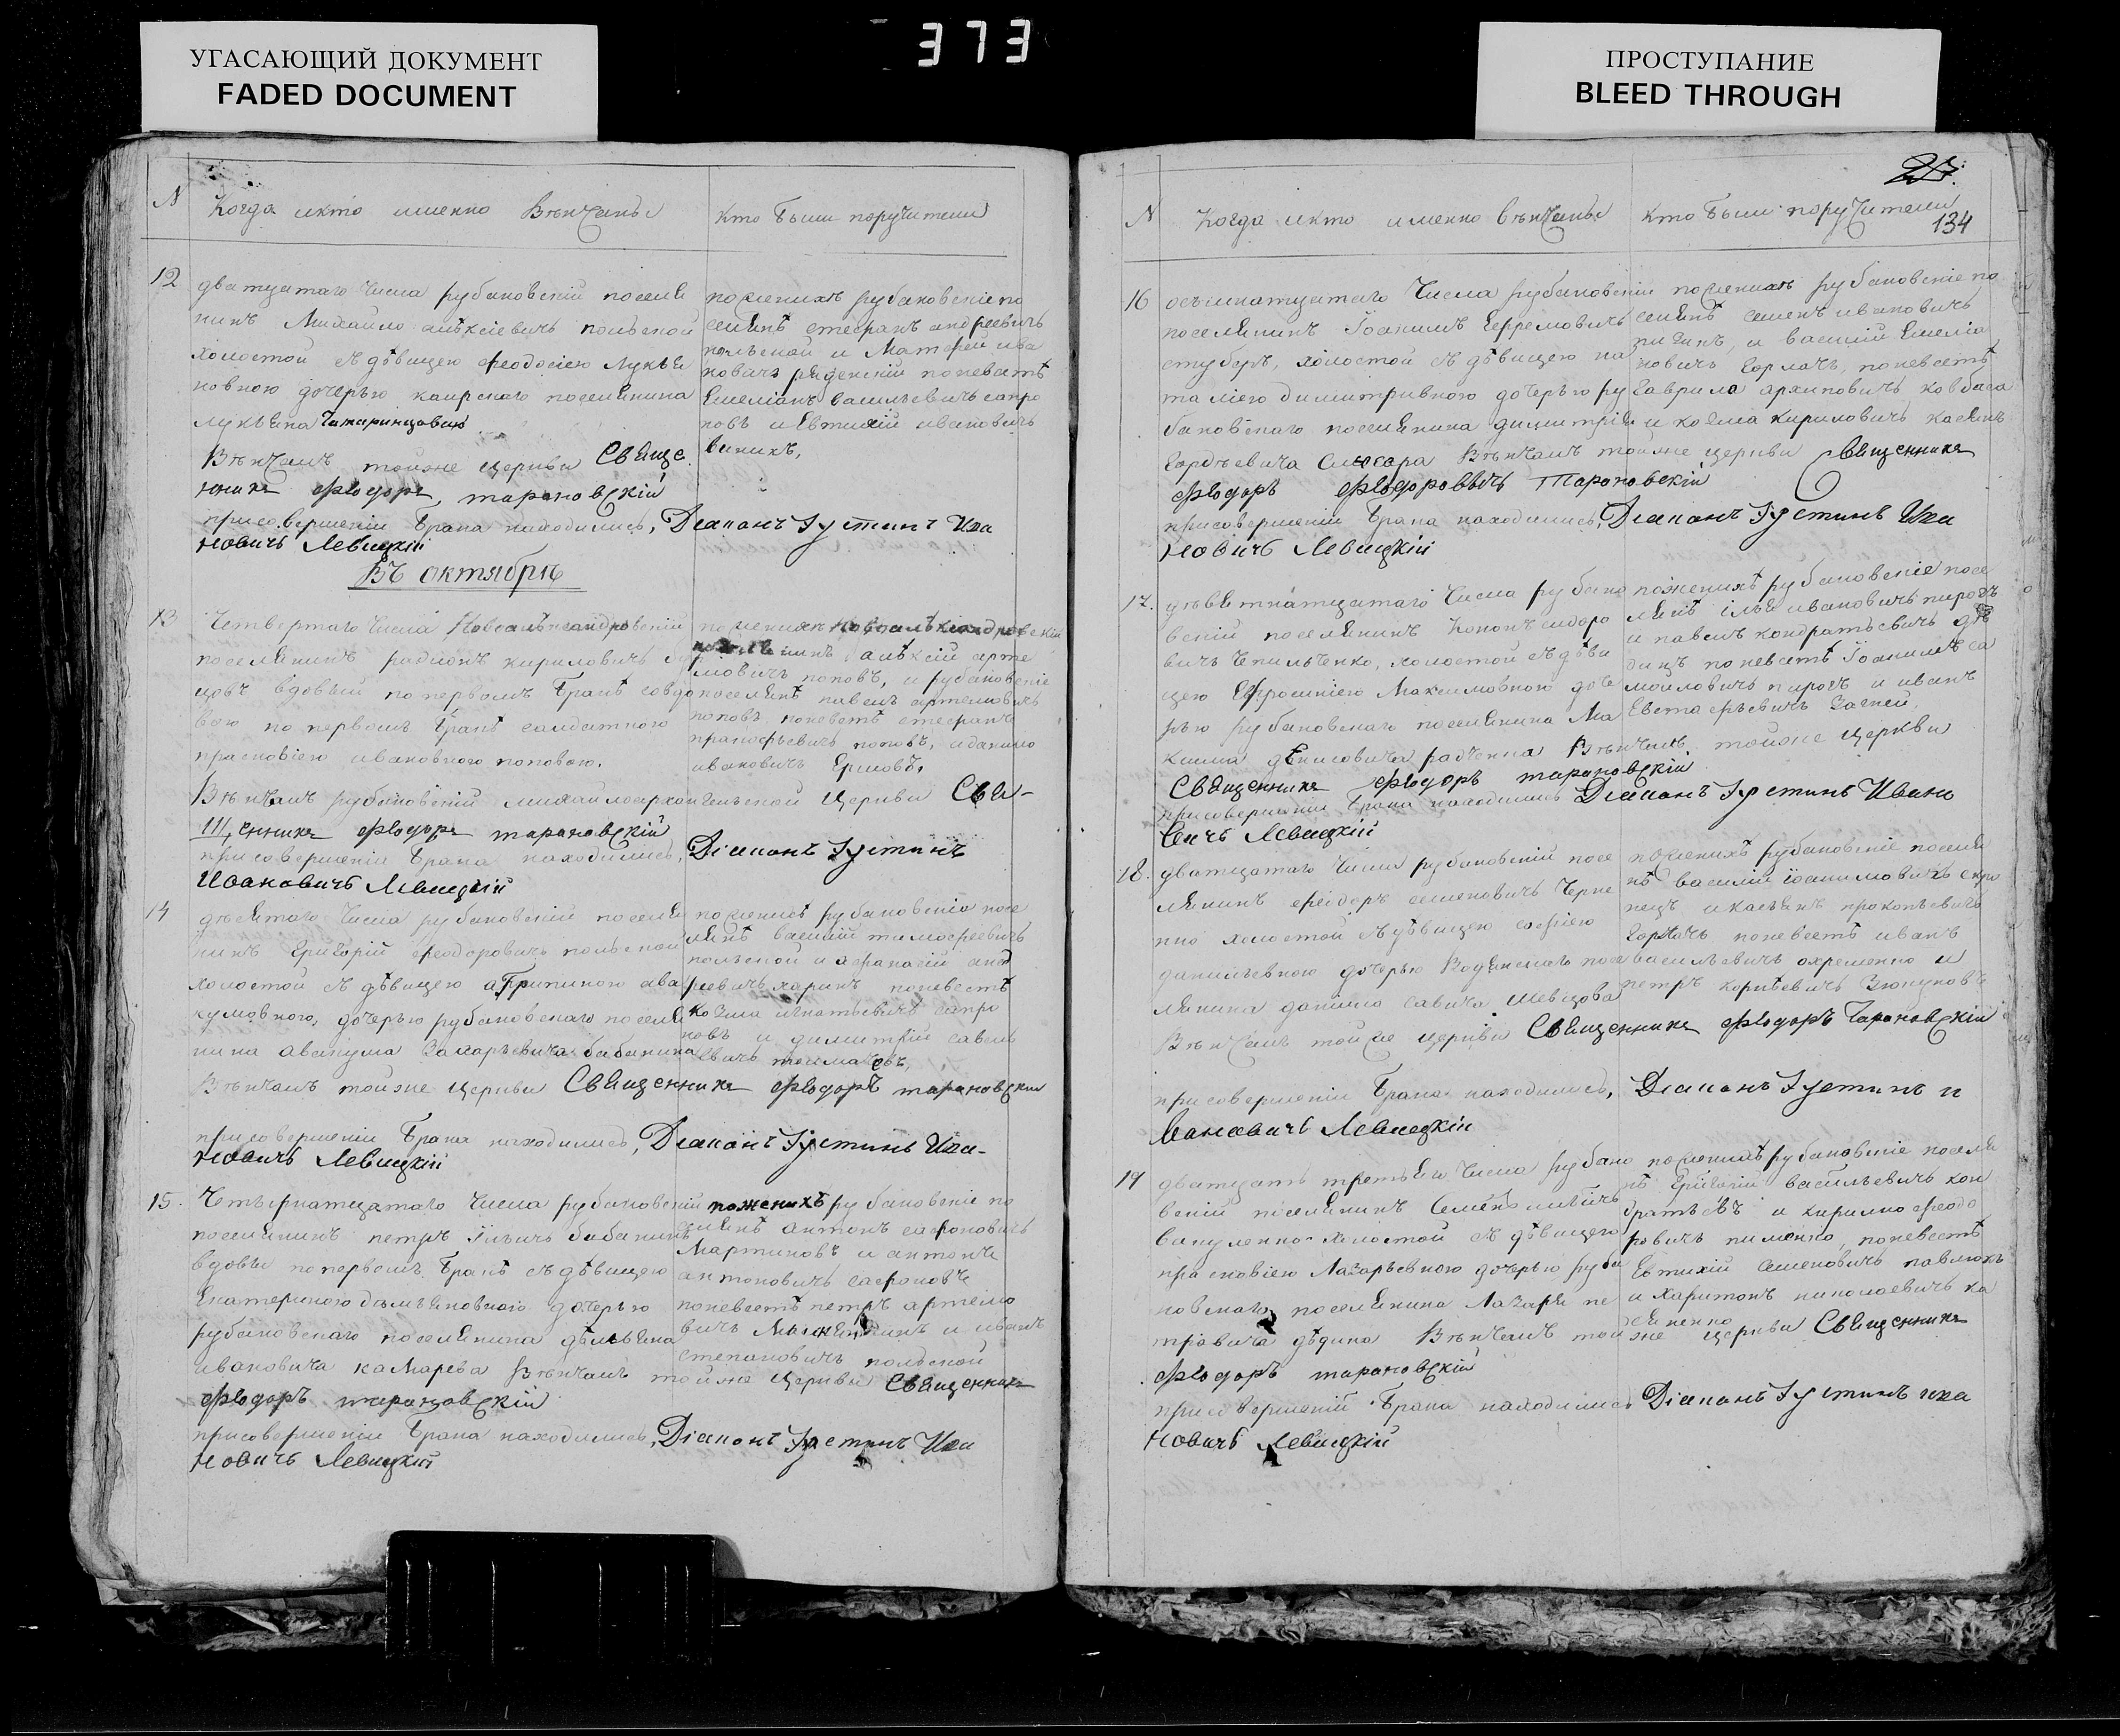 УГАСАЮЩИЙ ДОКУМЕНТ
FADED DOCUMENT
373
ПРОСТУПАНИЕ
BLEED THROUGH
N
Когда икто именно Вѣнчаны
Кто были поручители
12
дватцатаго числа рубановскій поселя
нинъ Михайло алѣксіевичъ польской
холостой съ дѣвицею феодосіею Лукья
новною дочерью каирскаго поселянина
лукьяна
Вѣнчалъ тойже церкви Свяще
нникъ Ѳеодоръ тарановскій
присовершеніи брака находились, Діаконъ Іустинъ Ива
новичъ Левицкій
поженихѣ рубановскіе по
селянѣ стефанъ андреевичъ
польской и Матфей ива
новичъ поневестѣ
Емеліанъ васильевичъ сапро
новъ и Евтихій ивановичъ
Въ октябрѣ
13
Четвертаго числа Новоалѣксандровскій
поселянинъ радіонъ кириловичъ
вдовый попервомъ бракѣ совдо
вою по первомъ бракѣ салдаткою
прасковіею ивановною поповою.
Вѣнчалъ рубановскій михайлоархангельской церкви Свя-
щенникъ Ѳеодоръ тарановскій
присовершеніи брака находились, Діаконъ Іустинъ
Ивановичъ Левицкій
поженихѣ Новоалѣксандровскій
алѣксій арте
мовичъ поповъ, и рубановскіе
поселянѣ павелъ артемовичъ
поповъ поневестѣ стефанъ
прокофьевичъ поповъ, иданило
ивановичъ Ермовъ,
14
десятаго числа рубановскій поселя
нинъ Григорій феодоровичъ польской
холостой съ дѣвицею агрипиною ава
кумовною, дочерью рубановскаго поселя
нина авакума Захарьевича бабанина
Вѣнчалъ тойже церкви Священникъ Ѳеодоръ тарановскій
присовершеніи брака находились, Діаконъ Іустинъ Ива-
новичъ Левицкій
поженихѣ рубановскіе посе
лянѣ василій тимофеевичъ
польской и афанасій анд
реевичъ харинъ поневестѣ
козма игнатьевичъ сапро
новъ и димитрій савель
евичъ толмачевъ,
15.
Четырнатцатаго числа рубановскій
поселянинъ петръ Ильичъ бабанинъ
вдовы попервомъ бракѣ съ дѣвицею
Екатериною демьяновною дочерью
рубановскаго поселянина дѣмьяна
ивановича каМарева Вѣнчалъ тойже церкви Священникъ
Ѳеодоръ тарановскій
присовершеніи брака находились, Діаконъ Іустинъ Ива
новичъ Левицкій
поженихѣ рубановскіе по
селянѣ антонъ сафоновичъ
Мартиновъ и антонъ
антоновичъ сафоновъ
поневестѣ петръ артемо
вичъ и иванъ
степановичъ польской
134
N
Когда икто именно вѣнчаны
кто были поручители
16
осьмнатцатаго числа рубановскій
поселянинъ Іоакимъ Ефремовичъ
стубуръ, холостой съ дѣвицею на
таліею димитривною дочерью ру
бановскаго поселянина димитрія
Гордѣевича Вѣнчалъ тойже церкви священникъ
Ѳеодоръ Ѳеодоровичъ Тарановскій
присовершеніи брака находились, Діаконъ Іустинъ Ива
новичъ Левицкій
поженихѣ рубановскіе по
селянѣ семенъ ивановичъ
и василій Емелія
новичъ поневестѣ
Гаврила архиповичъ ковбаса
и козма кириловичъ
17.
девятнатцатаго числа рубано
вскій поселянинъ Кононъ сидоро
вичъ Чепильченко, холостой съ дѣви
цею Ефросиніею Максимовною доче
рью рубановскаго поселянина Ма
ксима денисовича радченка Вѣнчалъ тойже церкви
Священникъ Ѳеодоръ тарановскій
присовершеніи брака находились Діаконъ Іустинъ Ивано
вичъ Левицкій
поженихѣ рубановскіе посе
лянѣ ілья ивановичъ пирогъ
и павелъ кондратьевичъ дѣ
динъ поневестѣ Іоакимъ са
мойловичъ пирогъ и иванъ
Евстафьевичъ
18.
дватцатаго числа рубановскій посе
лянинъ феодоръ семеновичъ Черне
нко холостой съ дѣвицею софіею
даниліевною дочерью Водянскаго посе
лянина данила савича шевцова
Вѣнчалъ тойже церкви Священникъ Ѳеодоръ Тарановскій
присовершеніи брака находились, Діаконъ Іустинъ и
вановичъ Левицкій
поженихѣ рубановскіе поселя
нѣ василій іоакимовичъ скри
пецъ икасьянъ прокопьевичъ
поневестѣ иванъ
васильевичъ охременко и
петръ корнѣевичъ
19
дватцать третьяго числа рубано
вскій поселянинъ Семенъ
вакуленко холостой съ дѣвицею
прасковіею Лазарьевною дочерью руба
новскаго поселянина Лазаря пе
тровича дѣдина Вѣнчалъ тойже церкви Священникъ
Ѳеодоръ тарановскій
присовершеній брака находились Діаконъ Іустинъ ива
новичъ Левицкій
поженихѣ рубановскіе поселя
нѣ Григорій васильевичъ кон
дратьевъ и кирило феодо
ровичъ пименко, поневестѣ
Евтихій семеновичъ павлюкъ
и Харитонъ николаевичъ ка